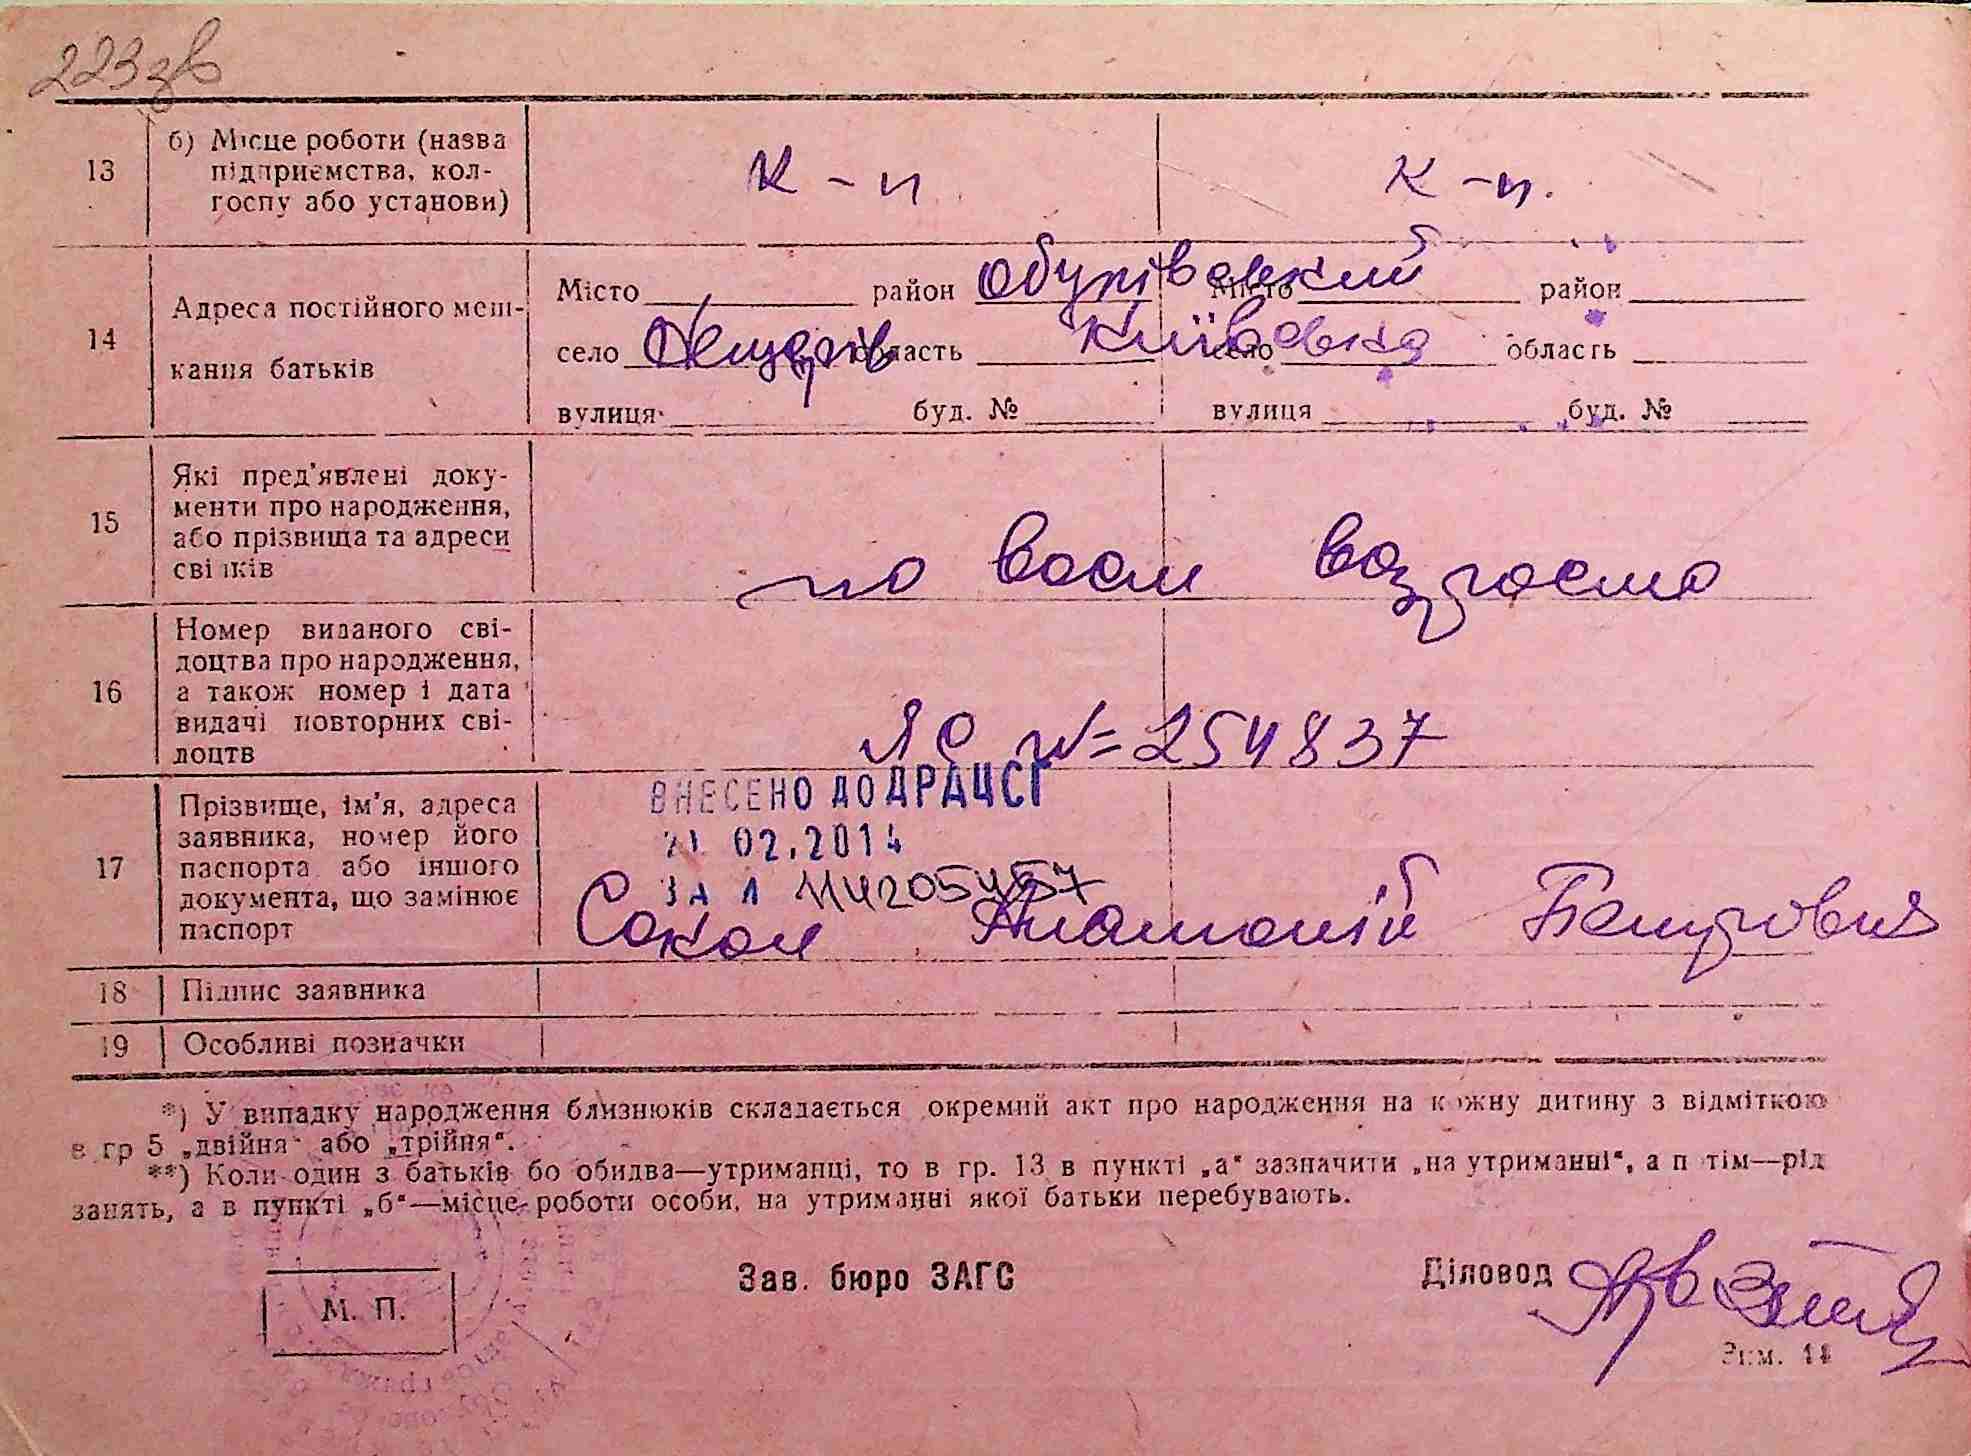 223 зв
13
б) Місце роботи (назва
підприємства, кол-
госпу або установи)
к-п
к-п.
14
Адреса постійного меш-
кання батьків
Місто район Обухівський Місто район
село область Київська село область
вулиця буд. № вулиця буд. №
15
Які пред'явлені доку-
менти про народження,
або прізвища та адреси
свідків
по восм возросто
16
Номер виданого сві-
доцтва про народження,
а також номер і дата
видачі повторних сві-
доцтв
ЯО № 254837
17
Прізвище, ім'я, адреса
заявника, номер його
паспорта або іншого
документа, що замінює
паспорт
ВНЕСЕНО ДО ДРАЦСГ
21 02.2014
ЗА
Сокол Анатолій Петрович
18
Підпис заявника
19
Особливі позначки
*) У випадку народження близнюків складається окремий акт про народження на кожну дитину з відміткою
в гр 5 „двійня“ або „трійня“.
**) Коли один з батьків бо обидва—утриманці, то в гр. 13 в пункті „а“ зазначити „на утриманні“, а п тім—рід
занять, а в пункті „б“—місце роботи особи, на утриманні якої батьки перебувають.
М. П.
Зав. бюро ЗАГС
Діловод
Зам.